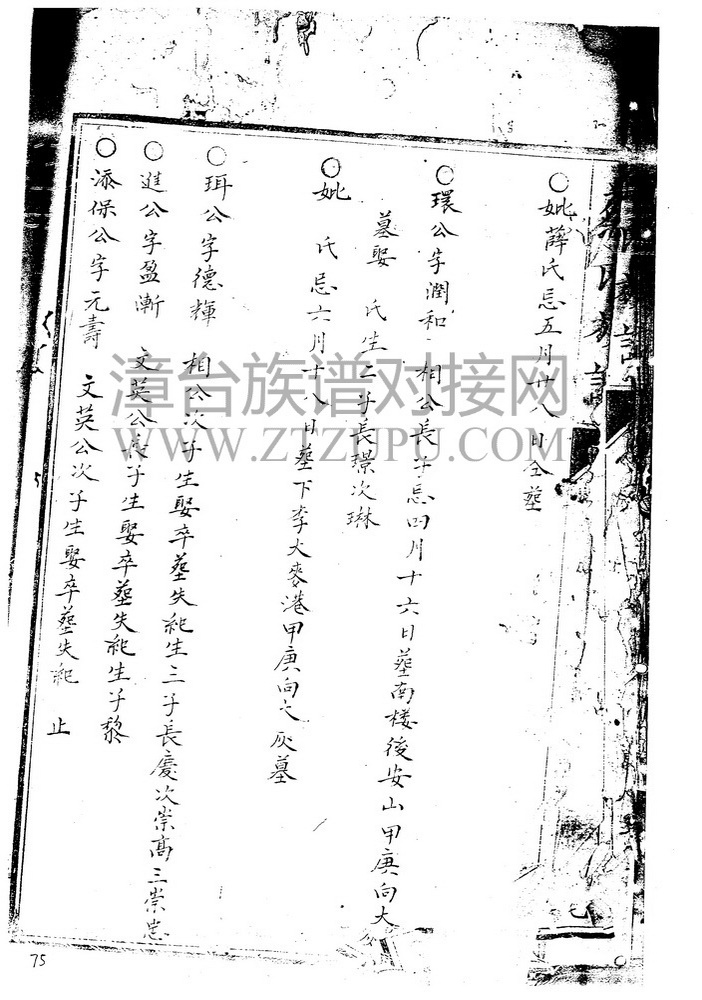 ○妣薛氏忌五月廿八日仝塟
○環公字潤和 相公長子忌四月十六日塟南楼後安山甲庚向大
墓娶 氏生二子長璟次琳
○妣 氏忌六月十八日塟下李大麥港甲庚向大灰墓
○珥公字德輝 相公次子生娶卒塟失紀生三子長慶次崇高三崇忠
○進公字盈漸 文英公長子生娶卒塟失紀生子黎
○添保公字元壽 文英公次子生娶卒塟失紀 止
漳台族谱对接网
WWW.ZTZUPU.COM
75